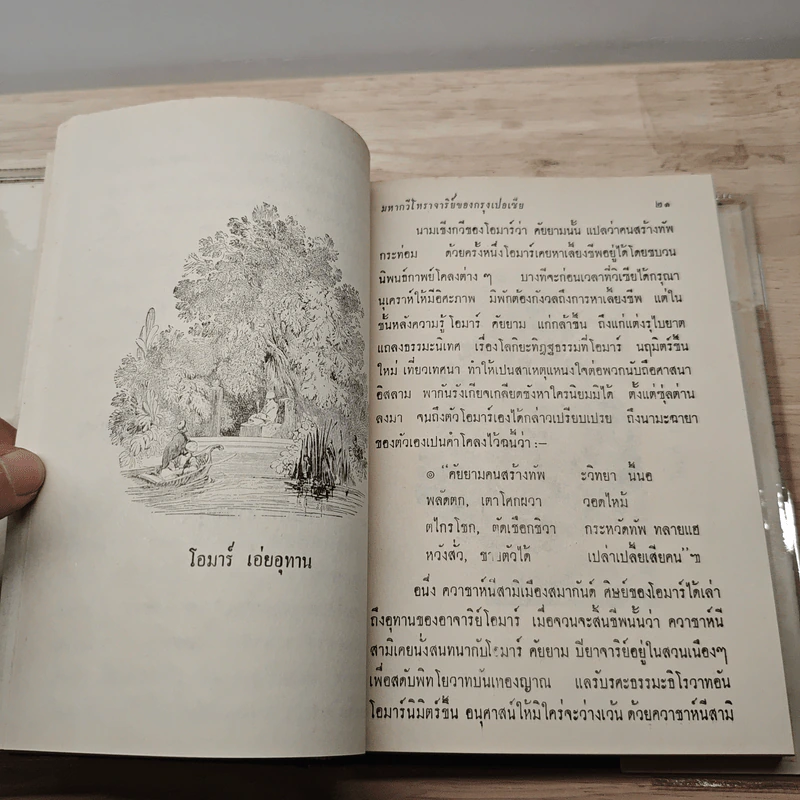 โอมาร์ เอ่ยอุทาน
มหากวีโหราจาริย์ของกรุงเปอเซีย ๒๑
นามเชิงกวีของโอมาร์ว่า คัยยามนั้น แปลว่าคนสร้างทัพ
กระท่อม ด้วยครั้งหนึ่งโอมาร์เคยหาเลี้ยงชีพอยู่ได้โดยขบวน
นิพนธ์กาพย์โคลงต่าง ๆ บางทีจะก่อนเวลาที่วิเซียได้กรุณา
นุเคราะห์ให้มีอิศะภาพ มิพักต้องกังวลถึงการหาเลี้ยงชีพ แต่ใน
ชั้นหลังความรู้ โอมาร์ คัยยาม แก่กล้าขึ้น ถึงแก่แต่งรุไบยาต
แถลงธรรมะนิเทศ เรื่องโลกิยะทิฏฐธรรมที่โอมาร์ นฤมิตร์ขึ้น
ใหม่ เที่ยวเทศนา ทำให้เปนสาเหตุแหนงใจต่อพวกนับถือศาสนา
อิสลาม พากันรังเกียจเกลียดชังหาใครนิยมมิได้ ตั้งแต่ซุลต่าน
ลงมา จนถึงตัวโอมาร์เองได้กล่าวเปรียบเปรย ถึงนามะฉายา
ของตัวเองเปนคำโคลงไว้ฉนี้ว่า :–
๏ "คัยยามคนสร้างทัพ ะวิทยา นี้นอ
พลัดตก, เตาโศกผวา วอดไหม้
ตไกรโชก, ตัดเชือกชิวา กระหวัดทัพ ทลายแฮ
หวังสั้ว, ตัวได้ เปล่าเปลี้ยเสียคน" ฯ
อนึ่ง ควาชาห์นีสามิเมืองสมากันด์ ศิษย์ของโอมาร์ได้เล่า
ถึงอุทานของอาจาริย์โอมาร์ เมื่อจวนจะสิ้นชีพนั้นว่า ควาชาห์นี
สามิเคยนั่งสนทนากับโอมาร์ คัยยาม ปิยาจาริย์อยู่ในสวนเนืองๆ
เพื่อสดับพิทโยวาทบันเทองญาณ แลรับรศะธรรมะธิโรวาทอัน
โอมาร์นิมิตร์ขึ้น อนุศาสน์ให้มิใคร่จะว่างเว้น ด้วยควาชาห์นีสามิ